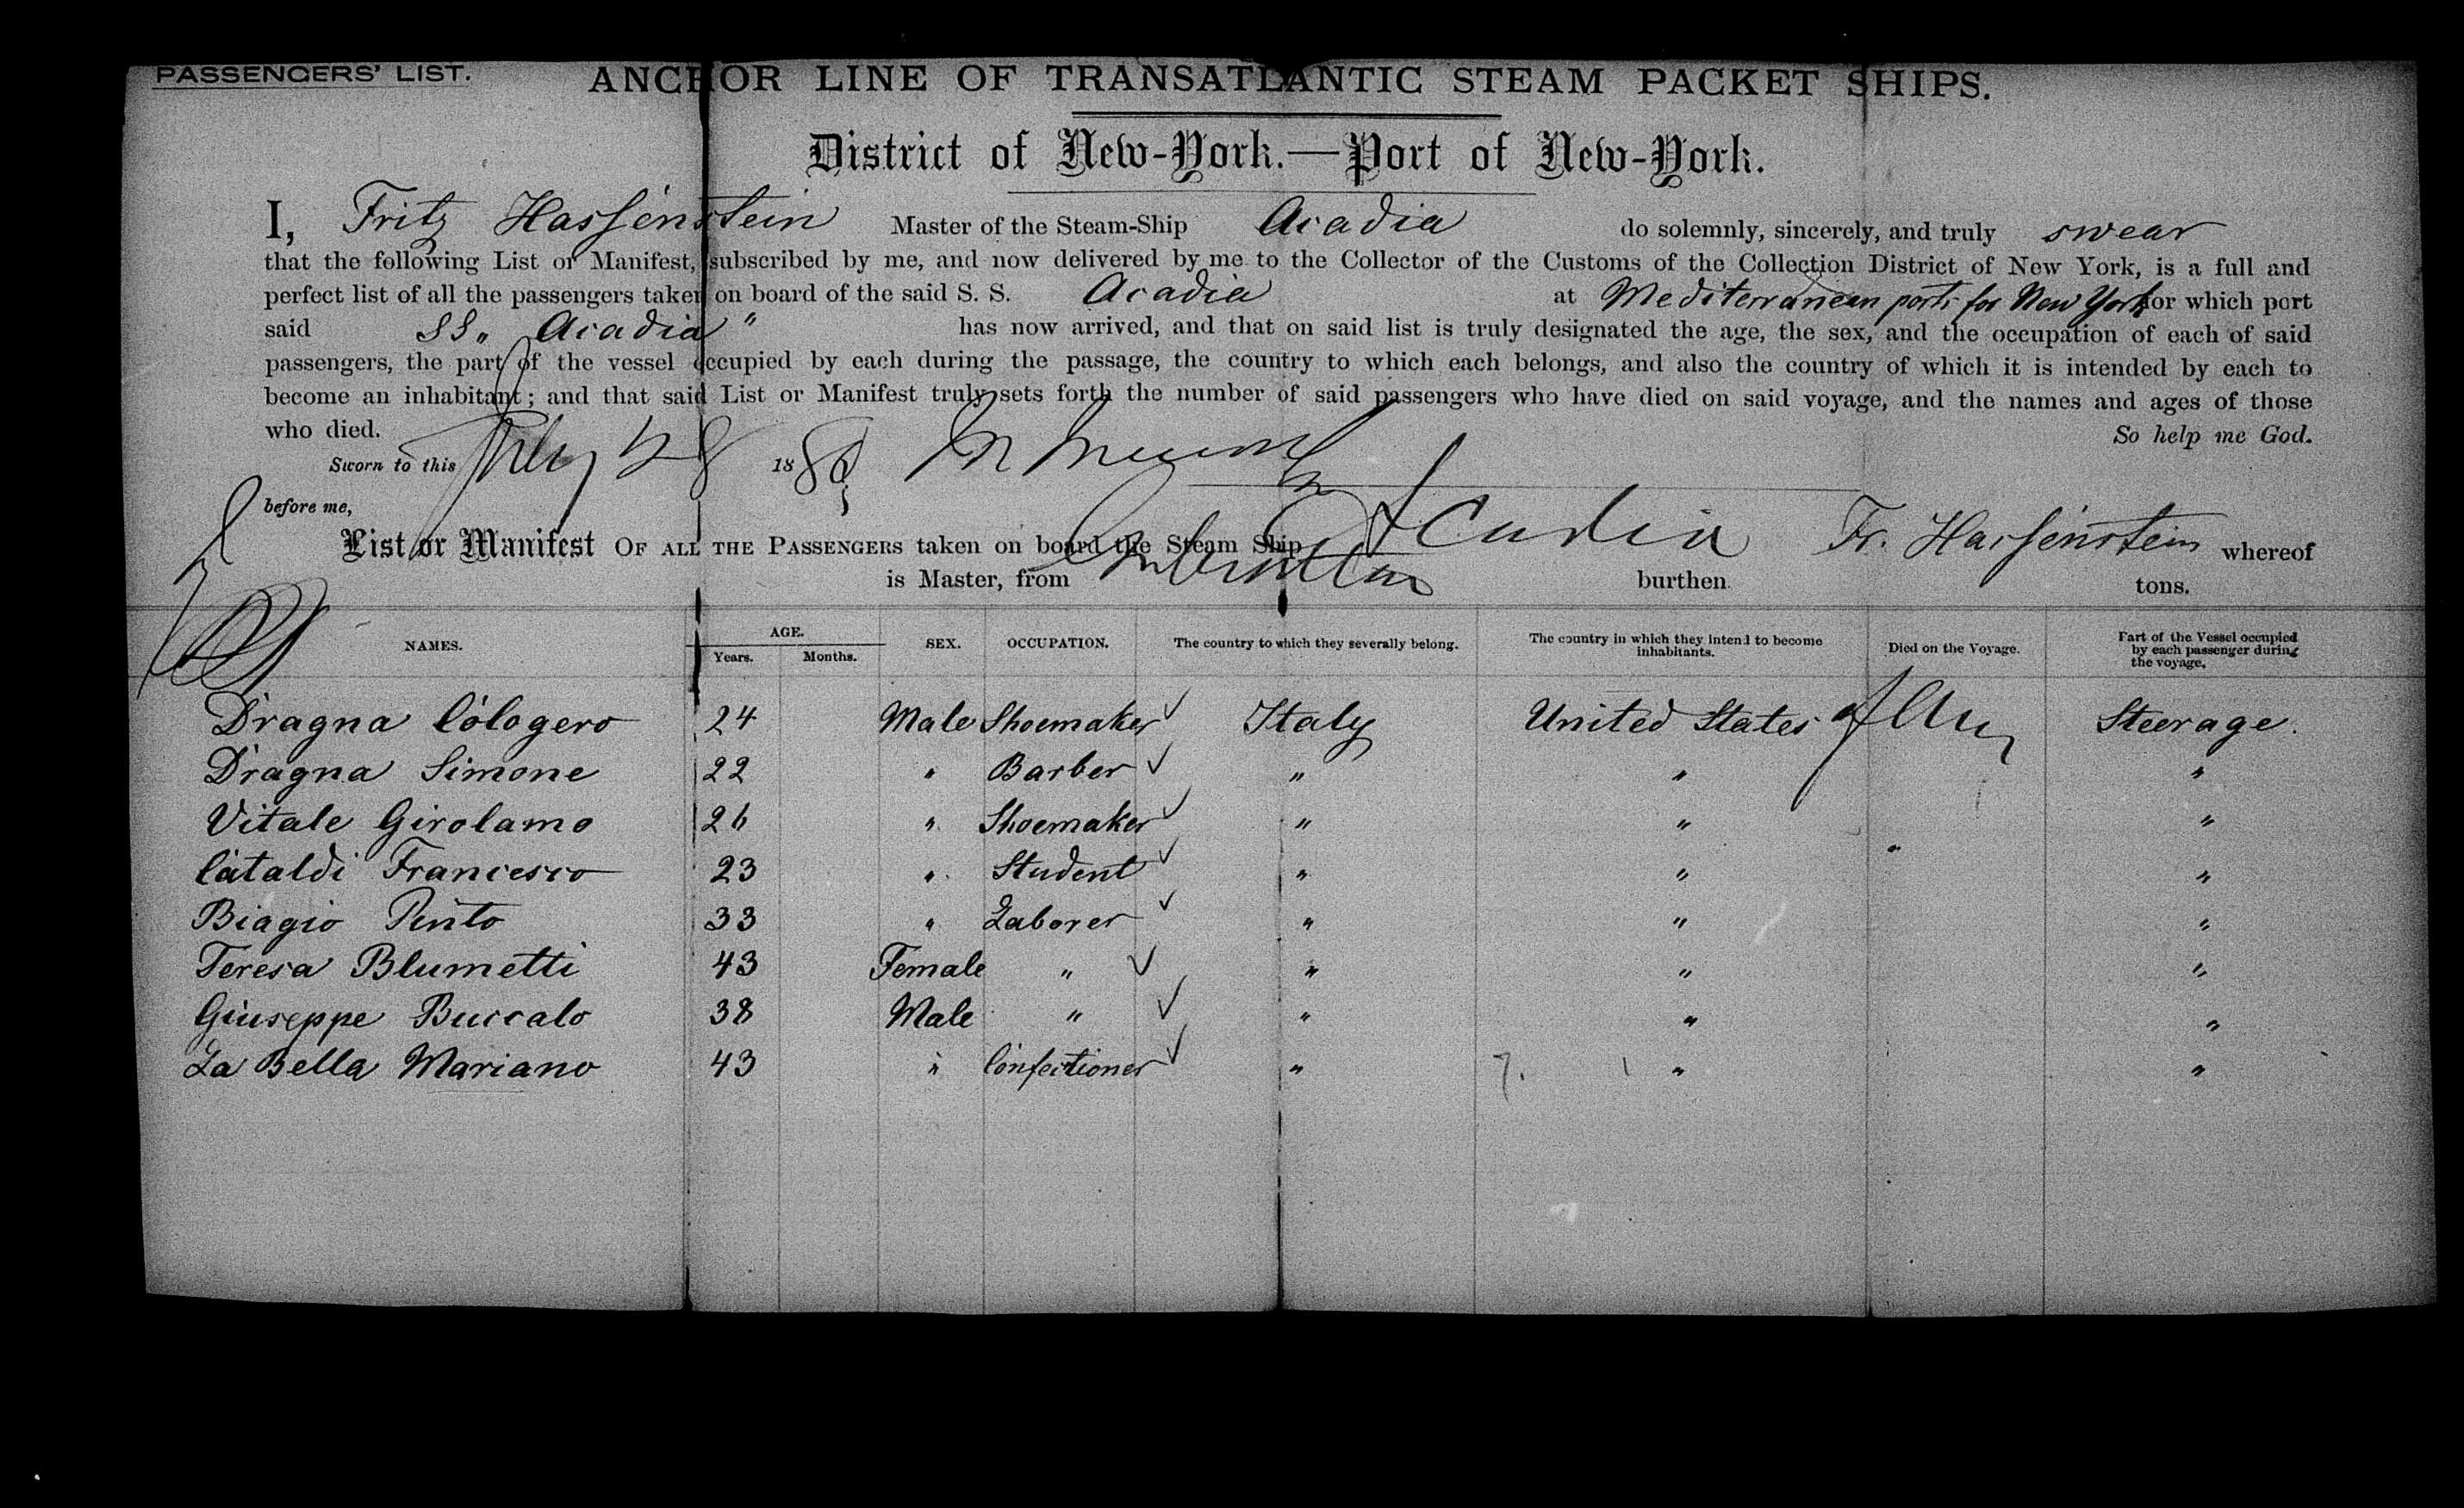 PASSENGERS' LIST.
ANCHOR LINE OF TRANSATLANTIC STEAM PACKET SHIPS.
District of New-York.—Port of New-York.
I, Fritz Hassenstein Master of the Steam-Ship Acadia do solemnly, sincerely, and truly swear
that the following List or Manifest, subscribed by me, and now delivered by me to the Collector of the Customs of the Collection District of New York, is a full and
perfect list of all the passengers taken on board of the said S. S. Acadia at Mediterranean ports for New York for which port
said SS„ Acadia" has now arrived, and that on said list is truly designated the age, the sex, and the occupation of each of said
passengers, the part of the vessel occupied by each during the passage, the country to which each belongs, and also the country of which it is intended by each to
become an inhabitant; and that said List or Manifest truly sets forth the number of said passengers who have died on said voyage, and the names and ages of those
who died. So help me God.
Sworn to this 18
before me,
List or Manifest OF ALL THE PASSENGERS taken on board the Steam Ship Acadia Fr. Hassenstein whereof
is Master, from burthen. tons.
NAMES. AGE. Years. Months. SEX. OCCUPATION. The country to which they severally belong. The country in which they intend to become inhabitants. Died on the Voyage. Part of the Vessel occupied by each passenger during the voyage.
Dragna Cologero 24 Male Shoemaker ✓ Italy United States of Steerage.
Dragna Simone 22 " Barber ✓ " " "
Vitale Girolamo 26 " Shoemaker ✓ " " "
Cataldi Francesco 23 " Student ✓ " " "
Biagio Pinto 33 " Laborer ✓ " " "
Teresa Blumetti 43 Female " ✓ " " "
Giuseppe Buccalo 38 Male " ✓ " " "
La Bella Mariano 43 " Confectioner ✓ " " "